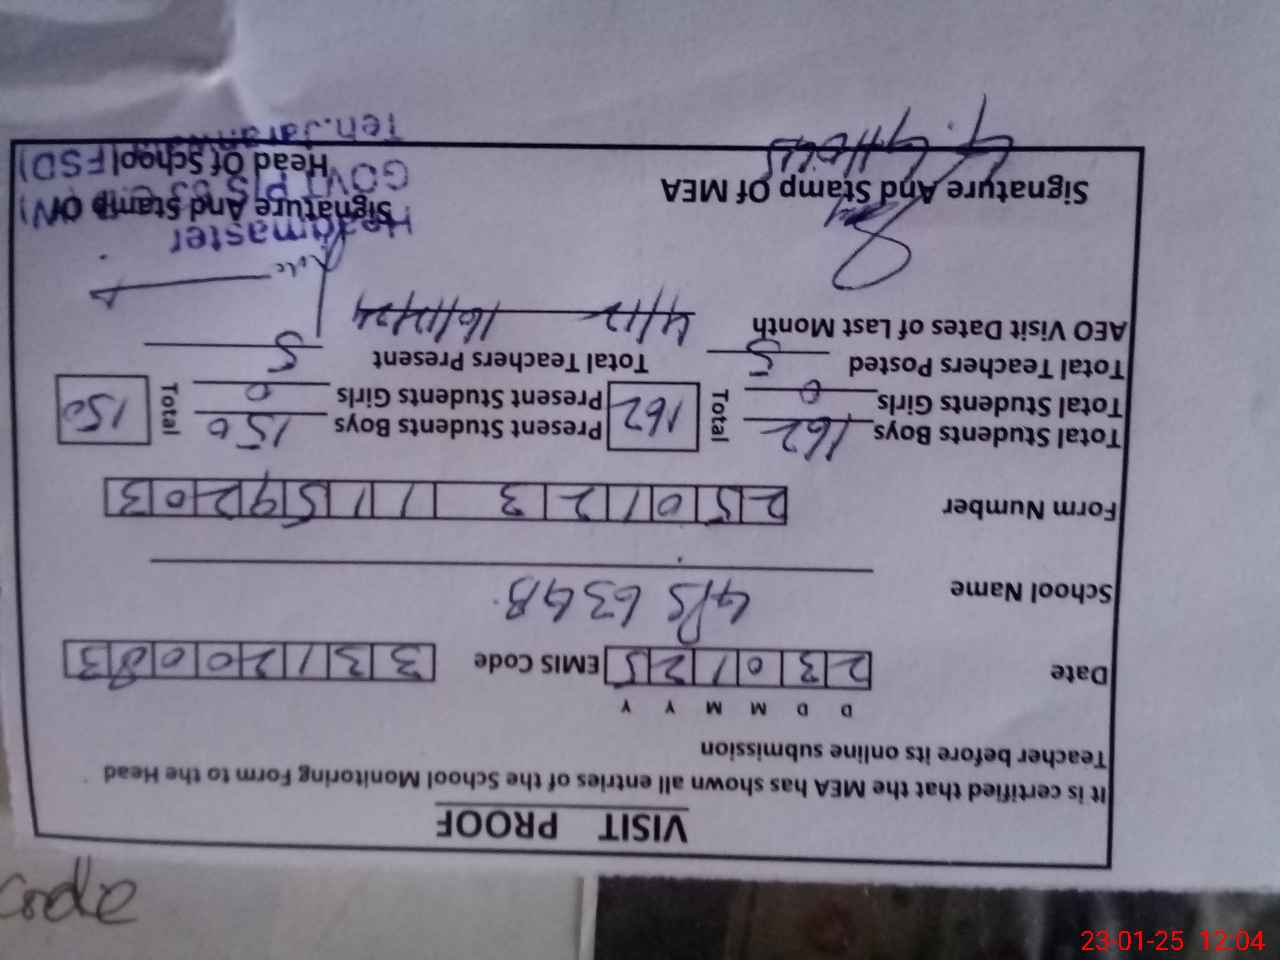 VISIT PROOF
It is certified that the MEA has shown all entries of the School Monitoring Form to the Head
Teacher before its online submission
D D M M Y Y
Date 2 3 0 1 2 5 EMIS Code 3 3 1 2 0 0 8 3
School Name GPS 63 GB
Form Number 2 5 0 1 2 3 1 1 5 9 2 0 3
Total Students Boys 162 Total 162 Present Students Boys 150 Total 150
Total Students Girls 0 Present Students Girls 0
Total Teachers Posted 5 Total Teachers Present 5
AEO Visit Dates of Last Month 4/12 16/12/24
Headmaster
Signature And Stamp Of MEA
Signature And Stamp Of
Head Of School
GOVT P/S 63 G.B
(FSD)
Teh.
code
23-01-25 12:04